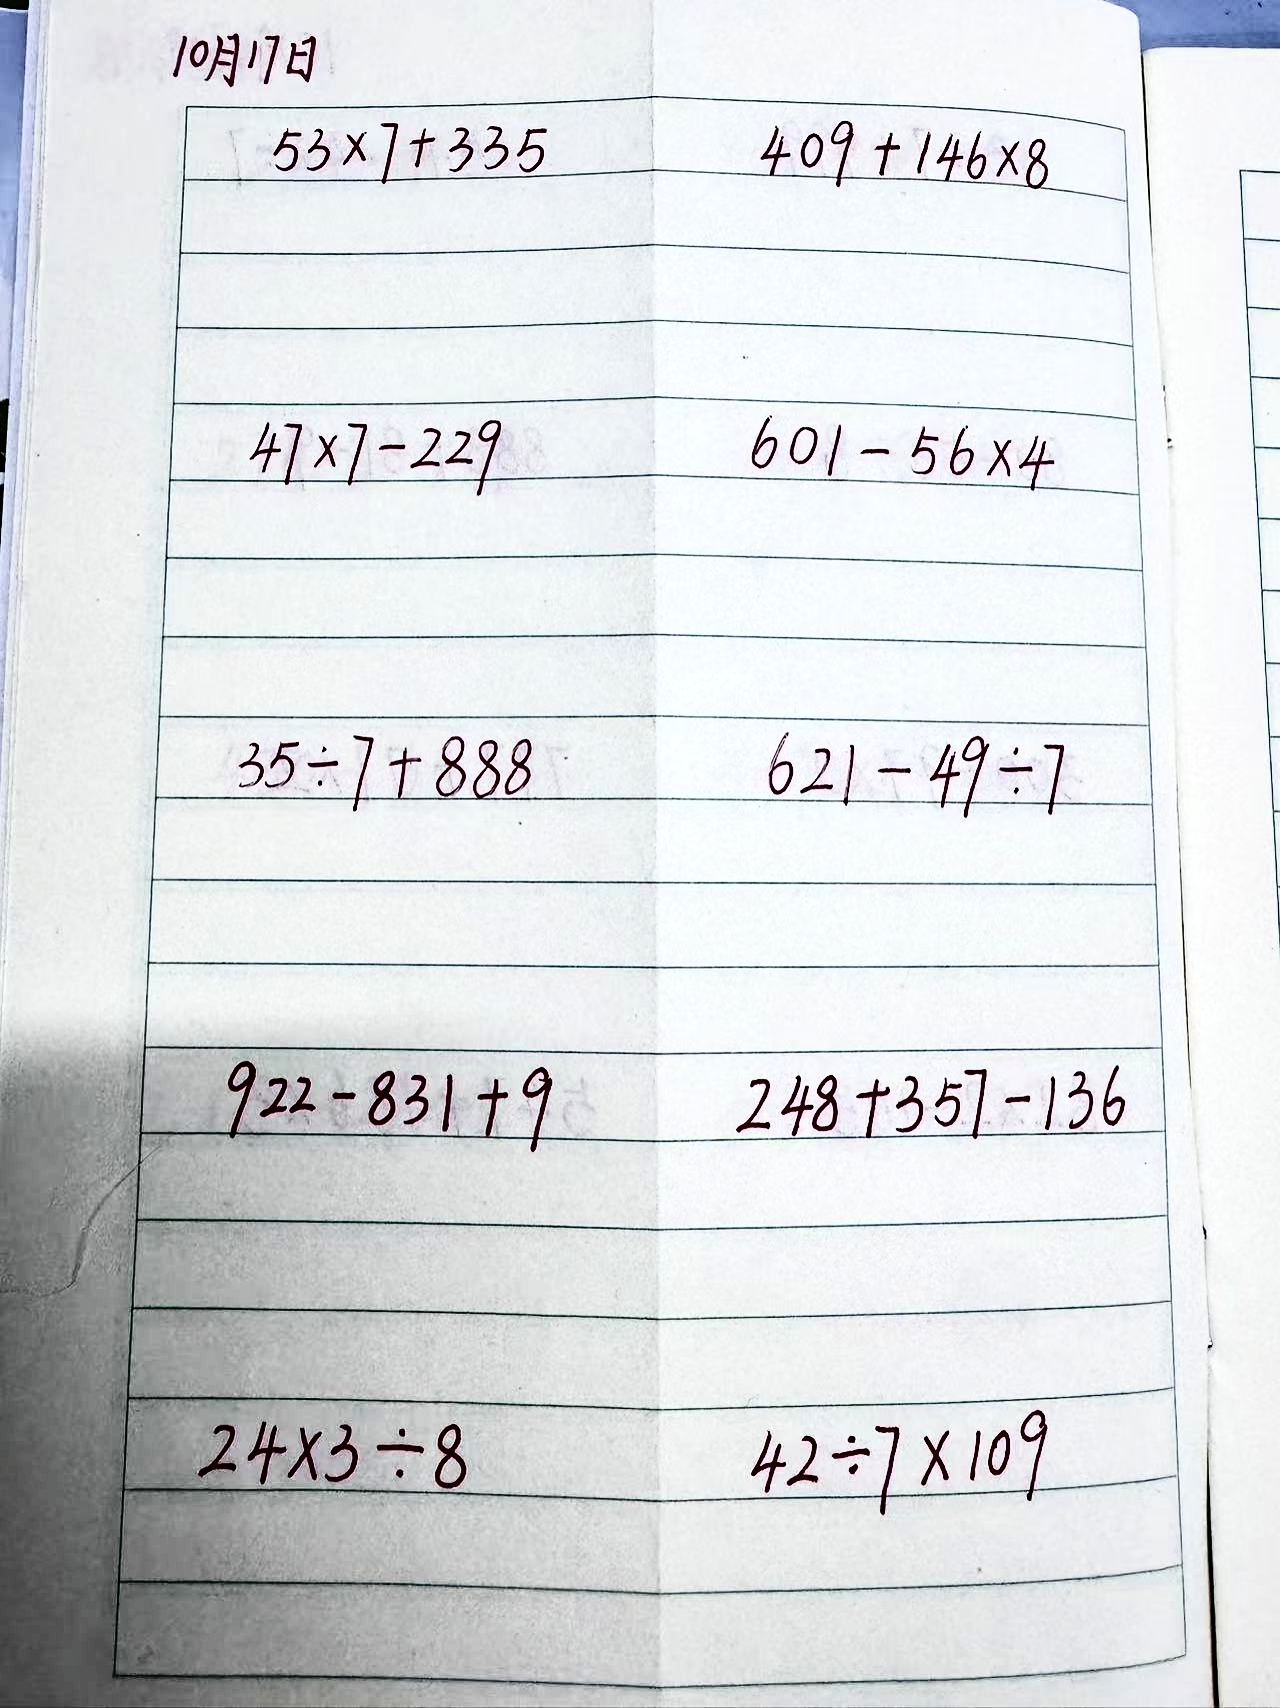 10月17日
53×7+335 409+146×8
47×7-229 601-56×4
35÷7+888 621-49÷7
922-831+9 248+357-136
24×3÷8 42÷7×109